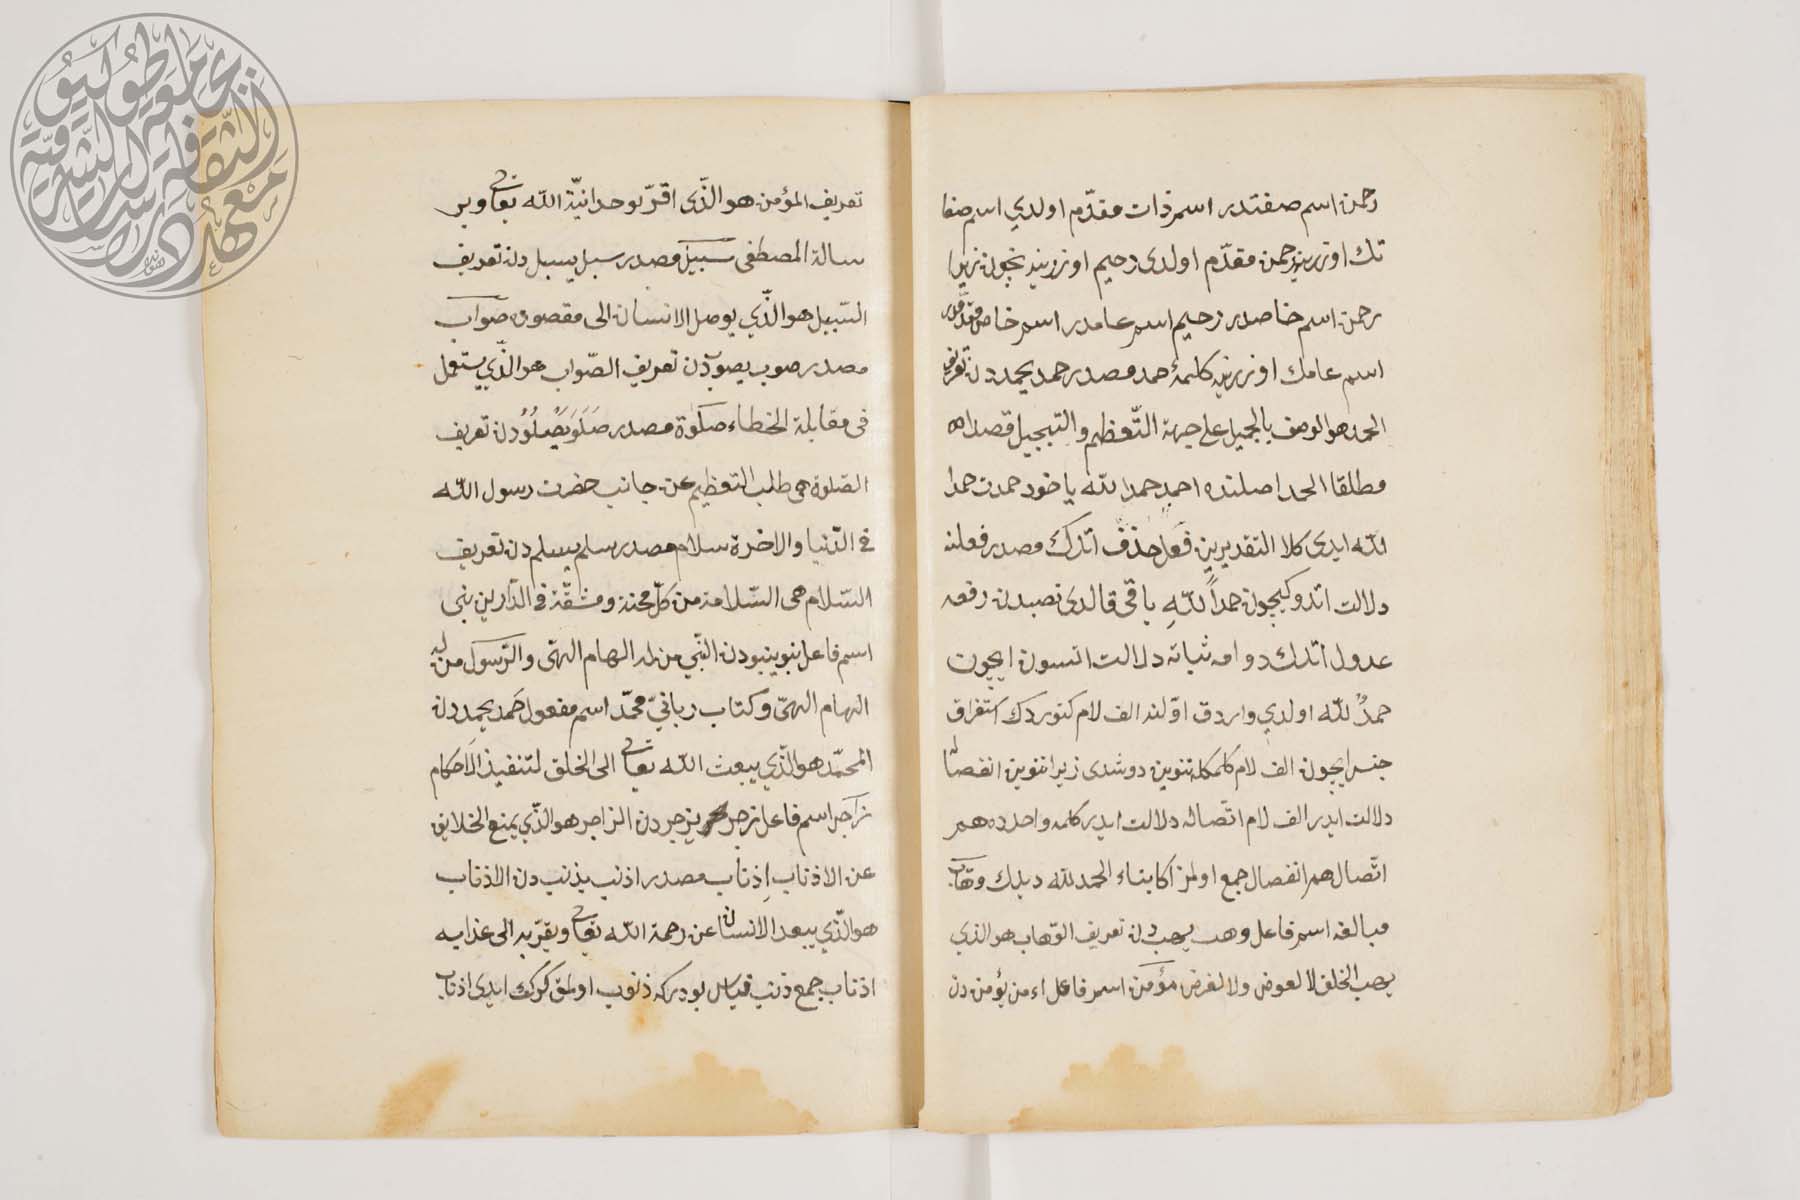 رحمن اسم صفتدر اسم ذات مقدّم اولدي اسم صفا
تك اوزرينه رحمن مقدّم اولدى رحيم اوزرينه نچون زيرا
رحمن اسم خاصدر رحيم اسم عامدر اسم خاص مقدّمدر
اسم عامك اوزرينه كلمۀ حمد مصدر حمد يحمددن تعريف
الحمد هو الوصف بالجميل على جهة التّعظيم والتبجيل قصدا اه
مطلقا الحمد اصلنده احمد حمدا لله ياخود حمدت حمدا
لله ايدى كلا التقديرين فعل حذف اتدك مصدر فعلنه
دلالت اتدوكيچون حمداً للّهِ باقى قالدى نصبدن رفعه
عدول اتدك دوامه ثباته دلالت اتسون ايچون
حمدٌ للّه اولدي واردق اوّلنه الف لام كتوردك استغراق
جنس ايچون الف لام كلمكله تنوين دوشدى زيرا تنوين انفصاله
دلالت ايدر الف لام اتّصاله دلالت ايدر كلمه واحدده هم
اتّصال هم انفصال جمع اولمز اكا بناء الحمد لله ديدك وهّاب
مبالغه اسم فاعل وهب يهب دن تعريف الوّهاب هو الذي
يهب الخلق لا لعوض ولا لغرض مؤمن اسم فاعل اءمن يؤمن دن
تعريف المؤمن هو الّذى اقرّ بوحدانيّة الله تعالى وبر
سالة المصطفى سبيل مصدر سبل يسبل دن تعريف
السّبيل هو الّذي يوصل الانسان الى مقصوده صواب
مصدر صوب يصوب دن تعريف الصّواب هو الّذي يستعمل
فى مقابلة الخطاء صلوة مصدر صَلَوَ يَصْلُوُ دن تعريف
الصّلوة هى طلب التعظيم عن جانب حضرت رسول اللّه
فى الدّنيا والاخرة سلام مصدر سلم يسلم دن تعريف
السّلام هى السّلامة من كلّ محنة ومشقّة فى الدّارين نبى
اسم فاعل نبو ينبو دن النّبي من له الهام الهىّ والرّسول من له
الهام الهىّ وكتاب ربانيّ محمّد اسم مفعول حَمد يحمد دن
المحمّد هو الّذي يبعث اللّه تعالى الى الخلق لتنفيذ الاَحكام
زاجر اسم فاعل زجر يزجر دن الزاجر هو الّذي يمنع الخلايق
عن الاذناب اِذناب مصدر اذنب يذنب دن الاذناب
هو الّذي يبعد الانسان عن رحمة اللّه تعالى ويقرّبه الى عذابه
اذناب جمع ذنب قياس بودركه ذنوب اولمق كرك ايدى اذناب